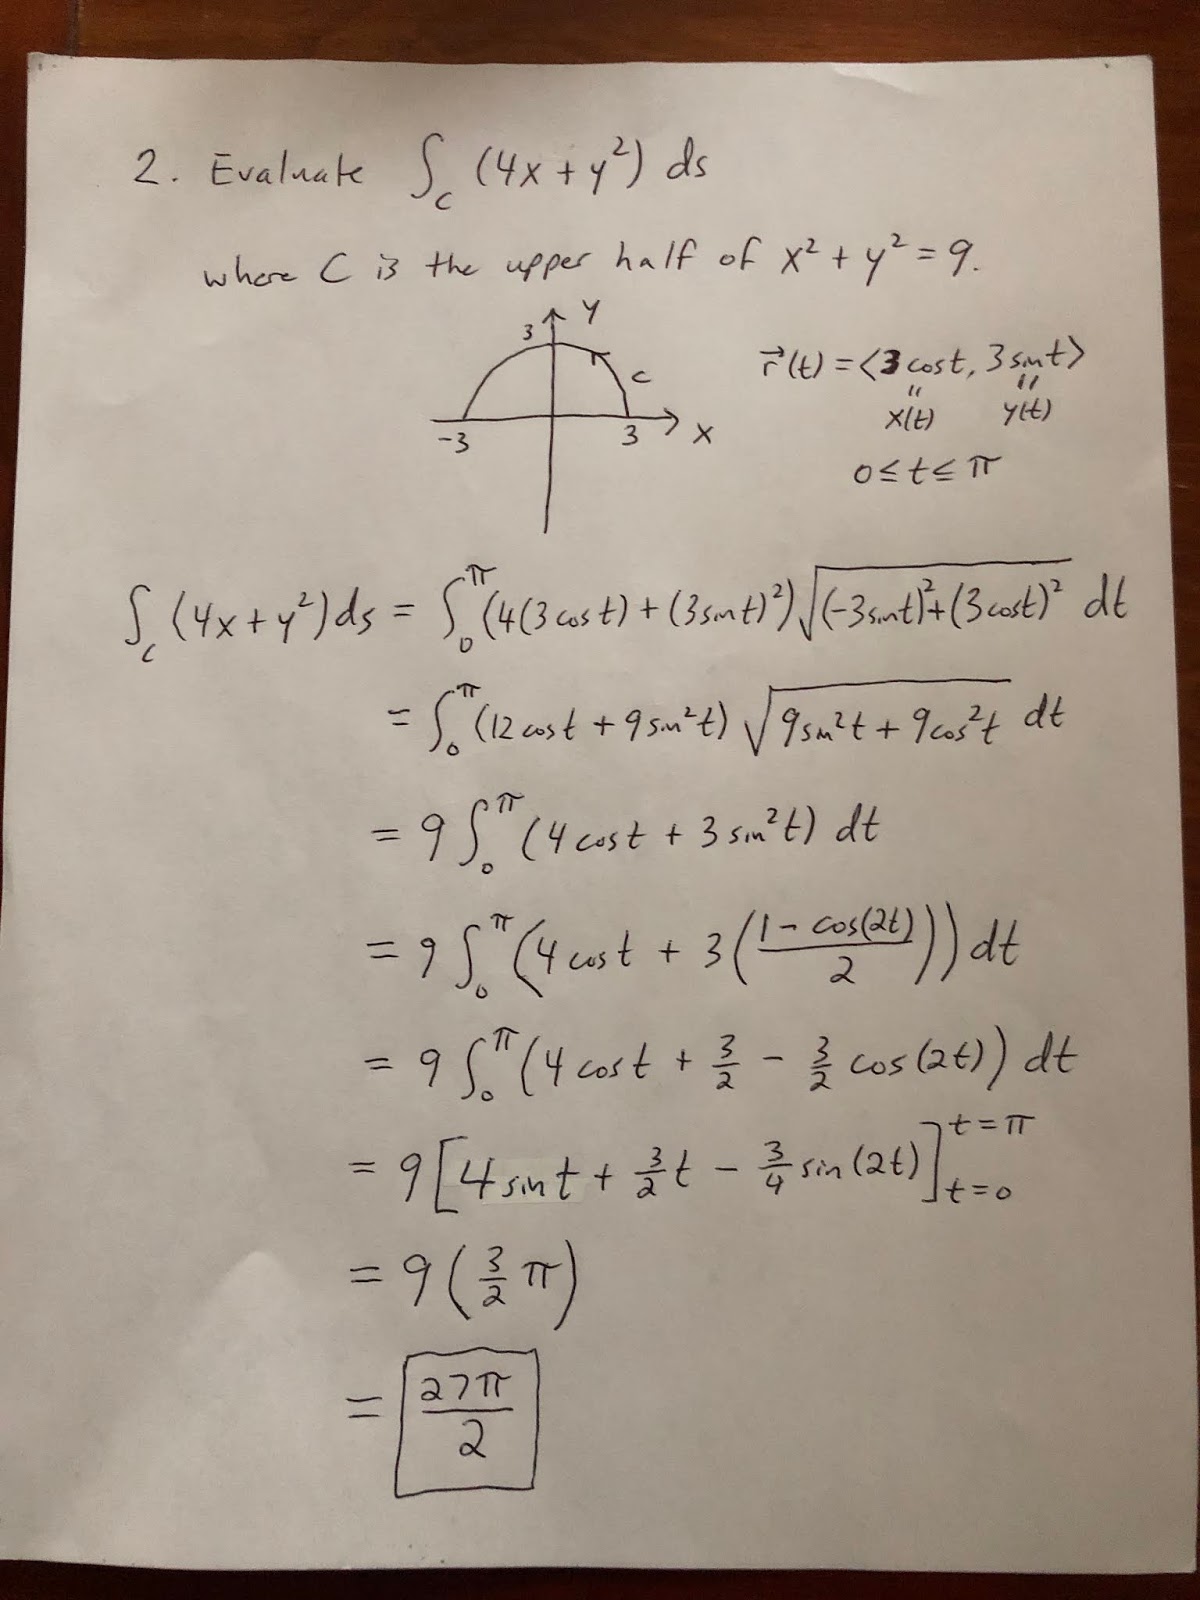 2. Evaluate ∫_C (4x + y²) ds
where C is the upper half of x² + y² = 9.
y
3
C
-3
3
x
r⃗(t) = ⟨3cost, 3sint⟩
"
"
x(t)
y(t)
0 ≤ t ≤ π
∫_C (4x + y²) ds = ∫_0^π (4(3cost) + (3sint)²) √((-3sint)² + (3cost)²) dt
= ∫_0^π (12cost + 9sin²t) √(9sin²t + 9cos²t) dt
= 9 ∫_0^π (4cost + 3sin²t) dt
= 9 ∫_0^π (4cost + 3((1 - cos(2t))/2)) dt
= 9 ∫_0^π (4cost + 3/2 - 3/2 cos(2t)) dt
= 9 [4sint + 3/2 t - 3/4 sin(2t)]_{t=0}^{t=π}
= 9 (3/2 π)
= 27π/2